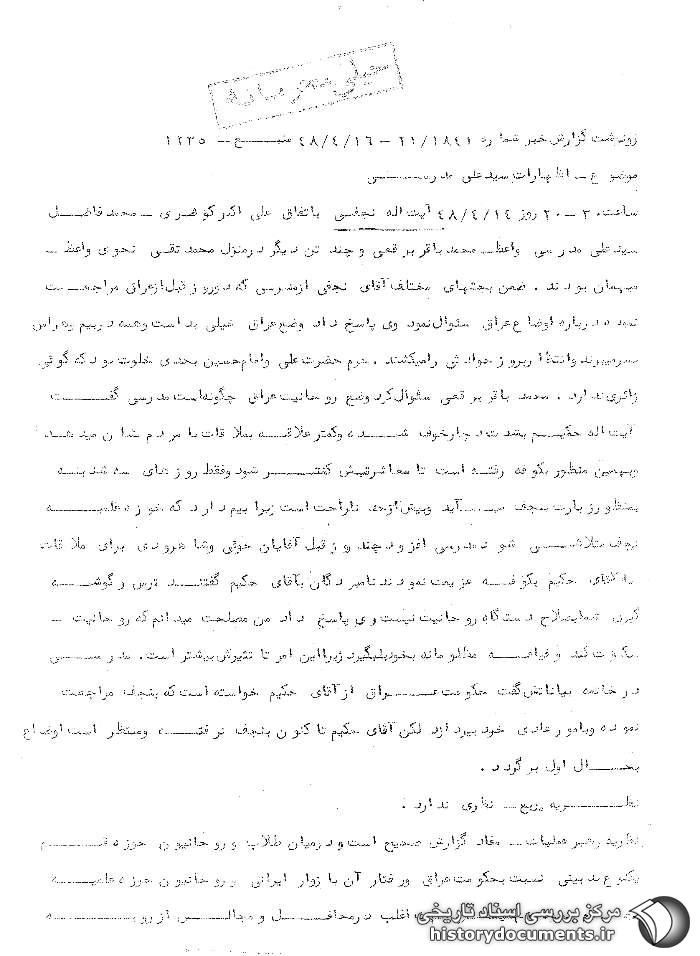 خیلی محرمانه
رونوشت گزارش خبر شماره ۲۱/۱۸۴۱ – ۴۸/۴/۱۶ منبع – ۱۲۳۵
موضوع – اظهارات سید علی مدرسی
ساعت ۲۰۳۰ روز ۴۸/۴/۱۴ آیت اله نجفی باتفاق علی اکبر گوهری – محمد فاضل
سید علی مدرسی واعظ محمد باقر برقعی و چند تن دیگر در منزل محمد تقی نحوی واعظ –
میهمان بودند . ضمن بحثهای مختلف آقای نجفی از مدرسی که دو روز قبل از عراق مراجعت
نموده درباره اوضاع عراق سئوال نمود وی پاسخ داد وضع عراق خیلی بد است و همه در بیم و هراس
بسر میبرند و انتظار بروز حوادثی را میکشند . حرم حضرت علی و امام حسین بحدی خلوت بود که گوئی
زائری ندارد . محمد باقر برقعی سئوال کرد وضع روحانیت عراق چگونه است مدرسی گفت
آیت اله حکیم بشدت دچار خوف شده و کمتر علاقه بملاقات با مردم نشان میدهد
و بهمین منظور بکوفه رفته است تا معاشرتش کمتر شود و فقط روزهای سه شنبه
بمنظور زیارت بنجف میآید و بیش از همه ناراحت است زیرا بیم دارد که حوزه علمیه
نجف متلاشی شود مدرسی افزود چند روز قبل آقایان خوئی و شاهرودی برای ملاقات
با آقای حکیم بکوفه عزیمت نمودند نامبردگان بآقای حکیم گفتند ترس و گوشه
گیری شما بصلاح دستگاه روحانیت نیست وی پاسخ داد من مصلحت میدانم که روحانیت –
سکوت کند و قیافه مظلومانه بخود بگیرد زیرا این امر تاثیرش بیشتر است . مدرسی
در خاتمه بیاناتش گفت حکومت عراق از آقای حکیم خواسته است که بنجف مراجعت
نموده و بامور عادی خود بپردازد لکن آقای حکیم تاکنون بنجف نرفته و منتظر است اوضاع
بحال اول برگردد .
نظریه منبع – نظری ندارد .
نظریه رهبر عملیات – مفاد گزارش صحیح است و در میان طلاب و روحانیون حوزه قم
یکنوع بدبینی نسبت بحکومت عراق و رفتار آن با زوار ایرانی و روحانیون حوزه علمیه
اغلب در محافل و مجالس از رویه
مرکز بررسی اسناد تاریخی
historydocuments.ir